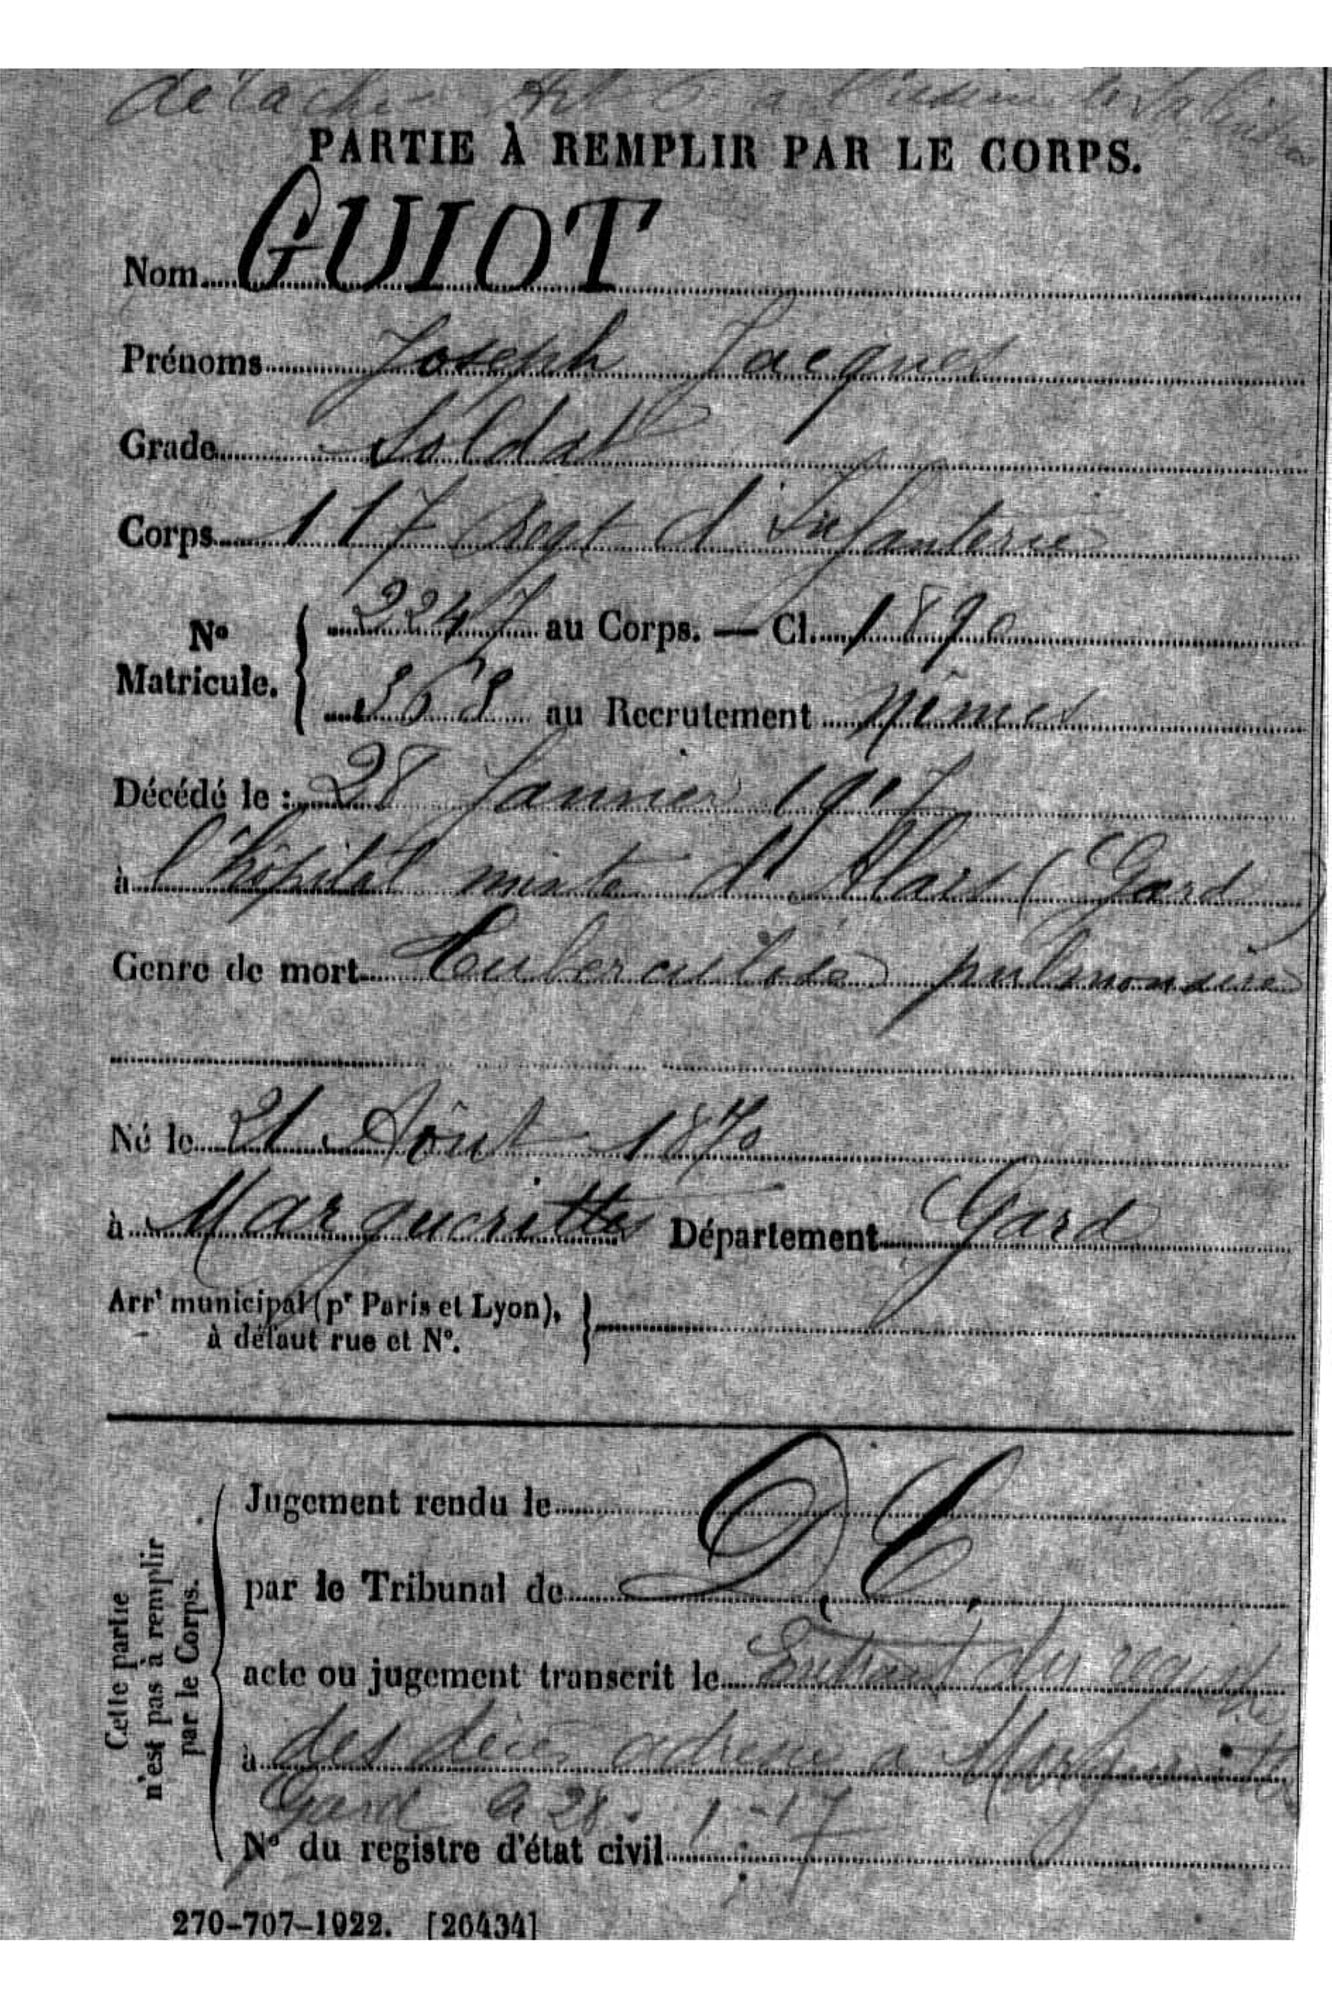 détaché Art 6 à l'usine de Salindres
PARTIE À REMPLIR PAR LE CORPS.
Nom GUIOT
Prénoms Joseph Jacques
Grade Soldat
Corps 117 Regt d'Infanterie
N° Matricule. 2247 au Corps. — Cl. 1890
au Recrutement Nîmes
Décédé le : 28 Janvier 1917
à l'hôpital mixte d'Alais (Gard)
Genre de mort Tuberculose pulmonaire
Né le 21 Août 1870
à Marguerittes Département Gard
Arrt municipal (pr Paris et Lyon),
à défaut rue et N°.
Cette partie
n'est pas à remplir
par le Corps.
Jugement rendu le
par le Tribunal de D. C.
acte ou jugement transcrit le Extrait du registre
à des décès adressé a Marguerittes
Gard le 28. 1-17
N° du registre d'état civil
270-707-1922. [26434]